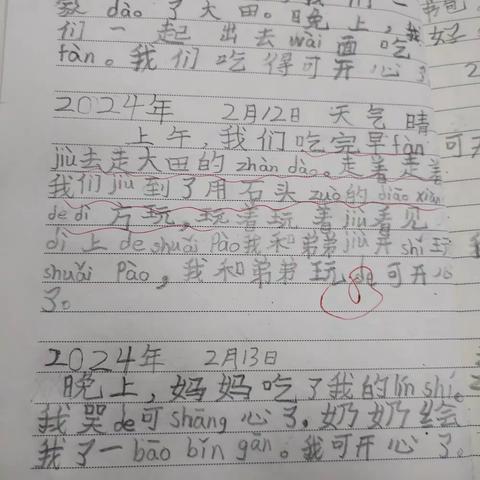 家 dào 了大田。晚上,我
们一起出去 wài 面吃
fàn。我们吃得可开心了
2024年 2月12日 天气晴
上午,我们吃完早fàn 可开
jiù去走大田的 zhàn dào。走着走着
我们 jiù 到了用石头 zuò的 diāo xiàng
de dì 方玩,玩着玩着jiù看见
dì 上 de shuǎi Pào我和弟弟jiù开shǐ玩
shuǎi Pào,我和弟弟玩 可开心
了。
2024年 2月13日
晚上,妈妈吃了我的lín shí。
我哭de可shāng心了,奶奶给
我了一bāo bǐn gān。我可开心了。
书包
好
2